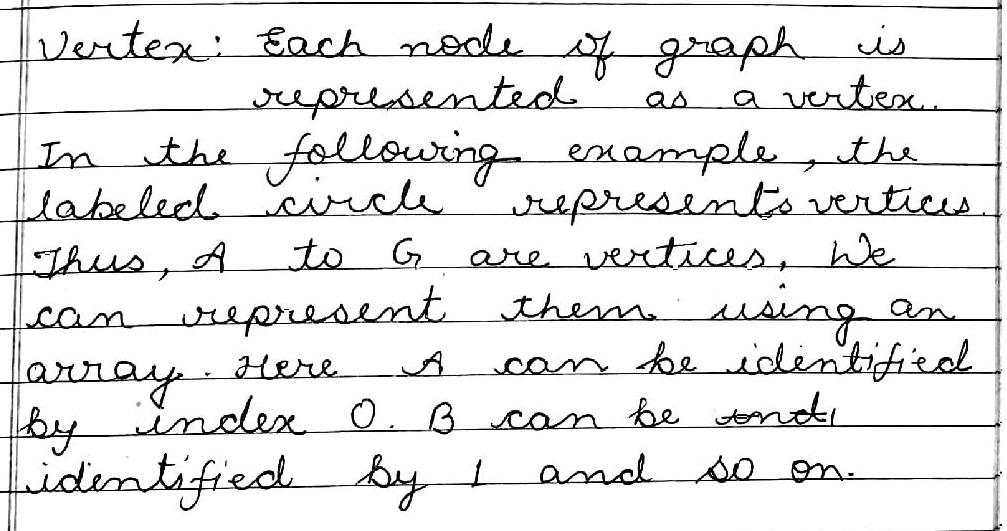 Vertex: Each node of graph is
represented as a vertex.
In the following example, the
labeled circle represents vertices.
Thus, A to G are vertices, We
can represent them using an
array. Here A can be identified
by index 0. B can be
identified by 1 and so on.